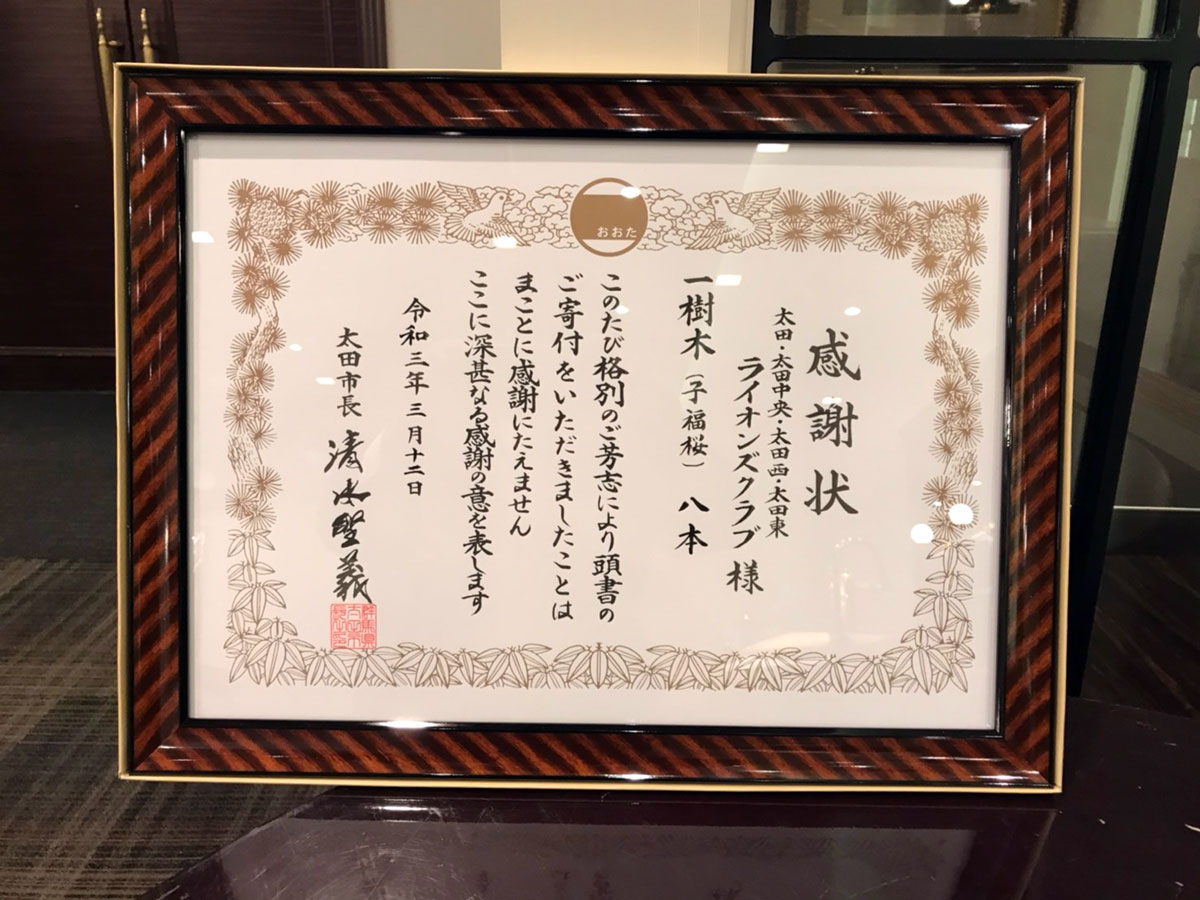 おおた
感謝状
太田・太田中央・太田西・太田東
ライオンズクラブ様
一樹木(子福桜) 八本
このたび格別のご芳志により頭書の
ご寄付をいただきましたことは
まことに感謝にたえません
ここに深甚なる感謝の意を表します
令和三年三月十二日
太田市長 清水聖義